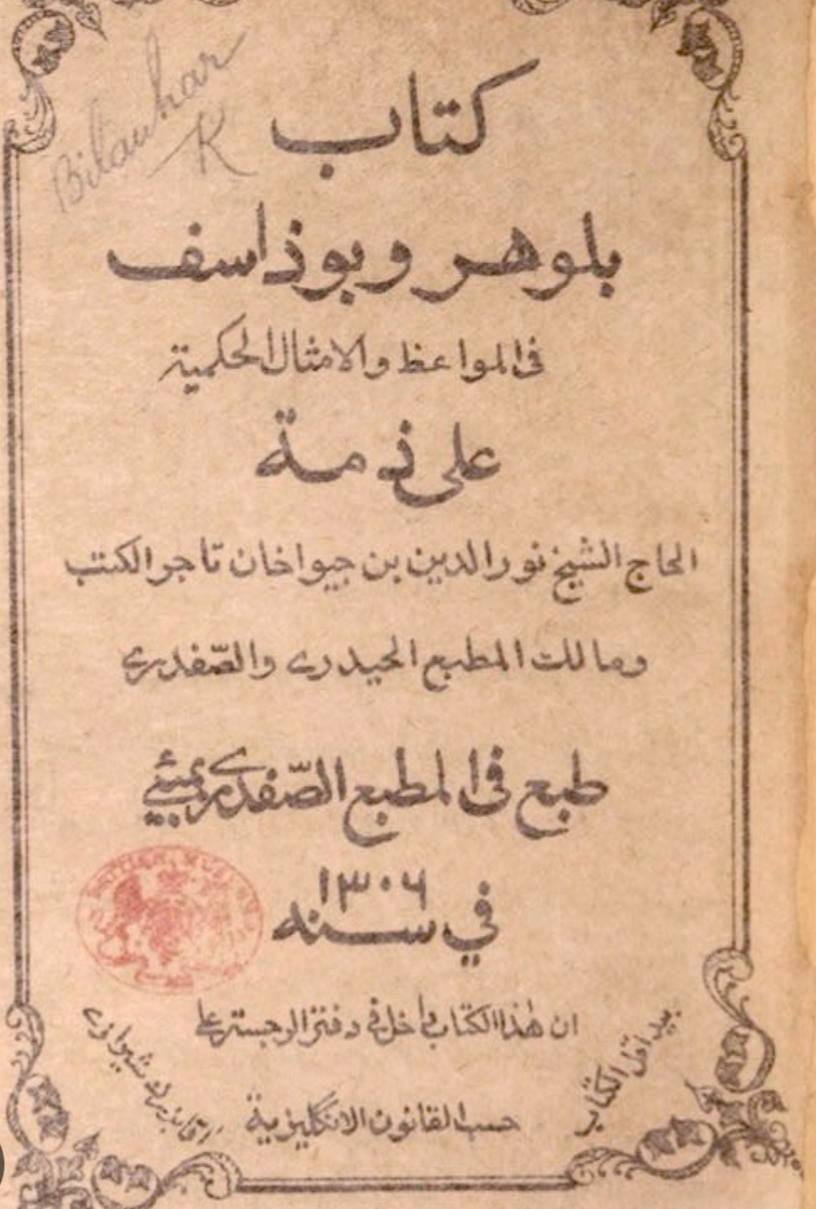 Bilauhar
K
كتاب
بلوهر وبوذاسف
فى المواعظ والامثال الحكمية
على ذمة
الحاج الشيخ نور الدين بن جيواخان تاجر الكتب
ومالك المطبع الحيدرى والصّفدرى
طبع فى المطبع الصّفدرى بمبئي
في سنه ١٣٠٦
ان هٰذا الكتاب داخل فى دفتر الرجسترى
حسب القانون الانكليزية
بيد اقل الكتاب
شيرازى